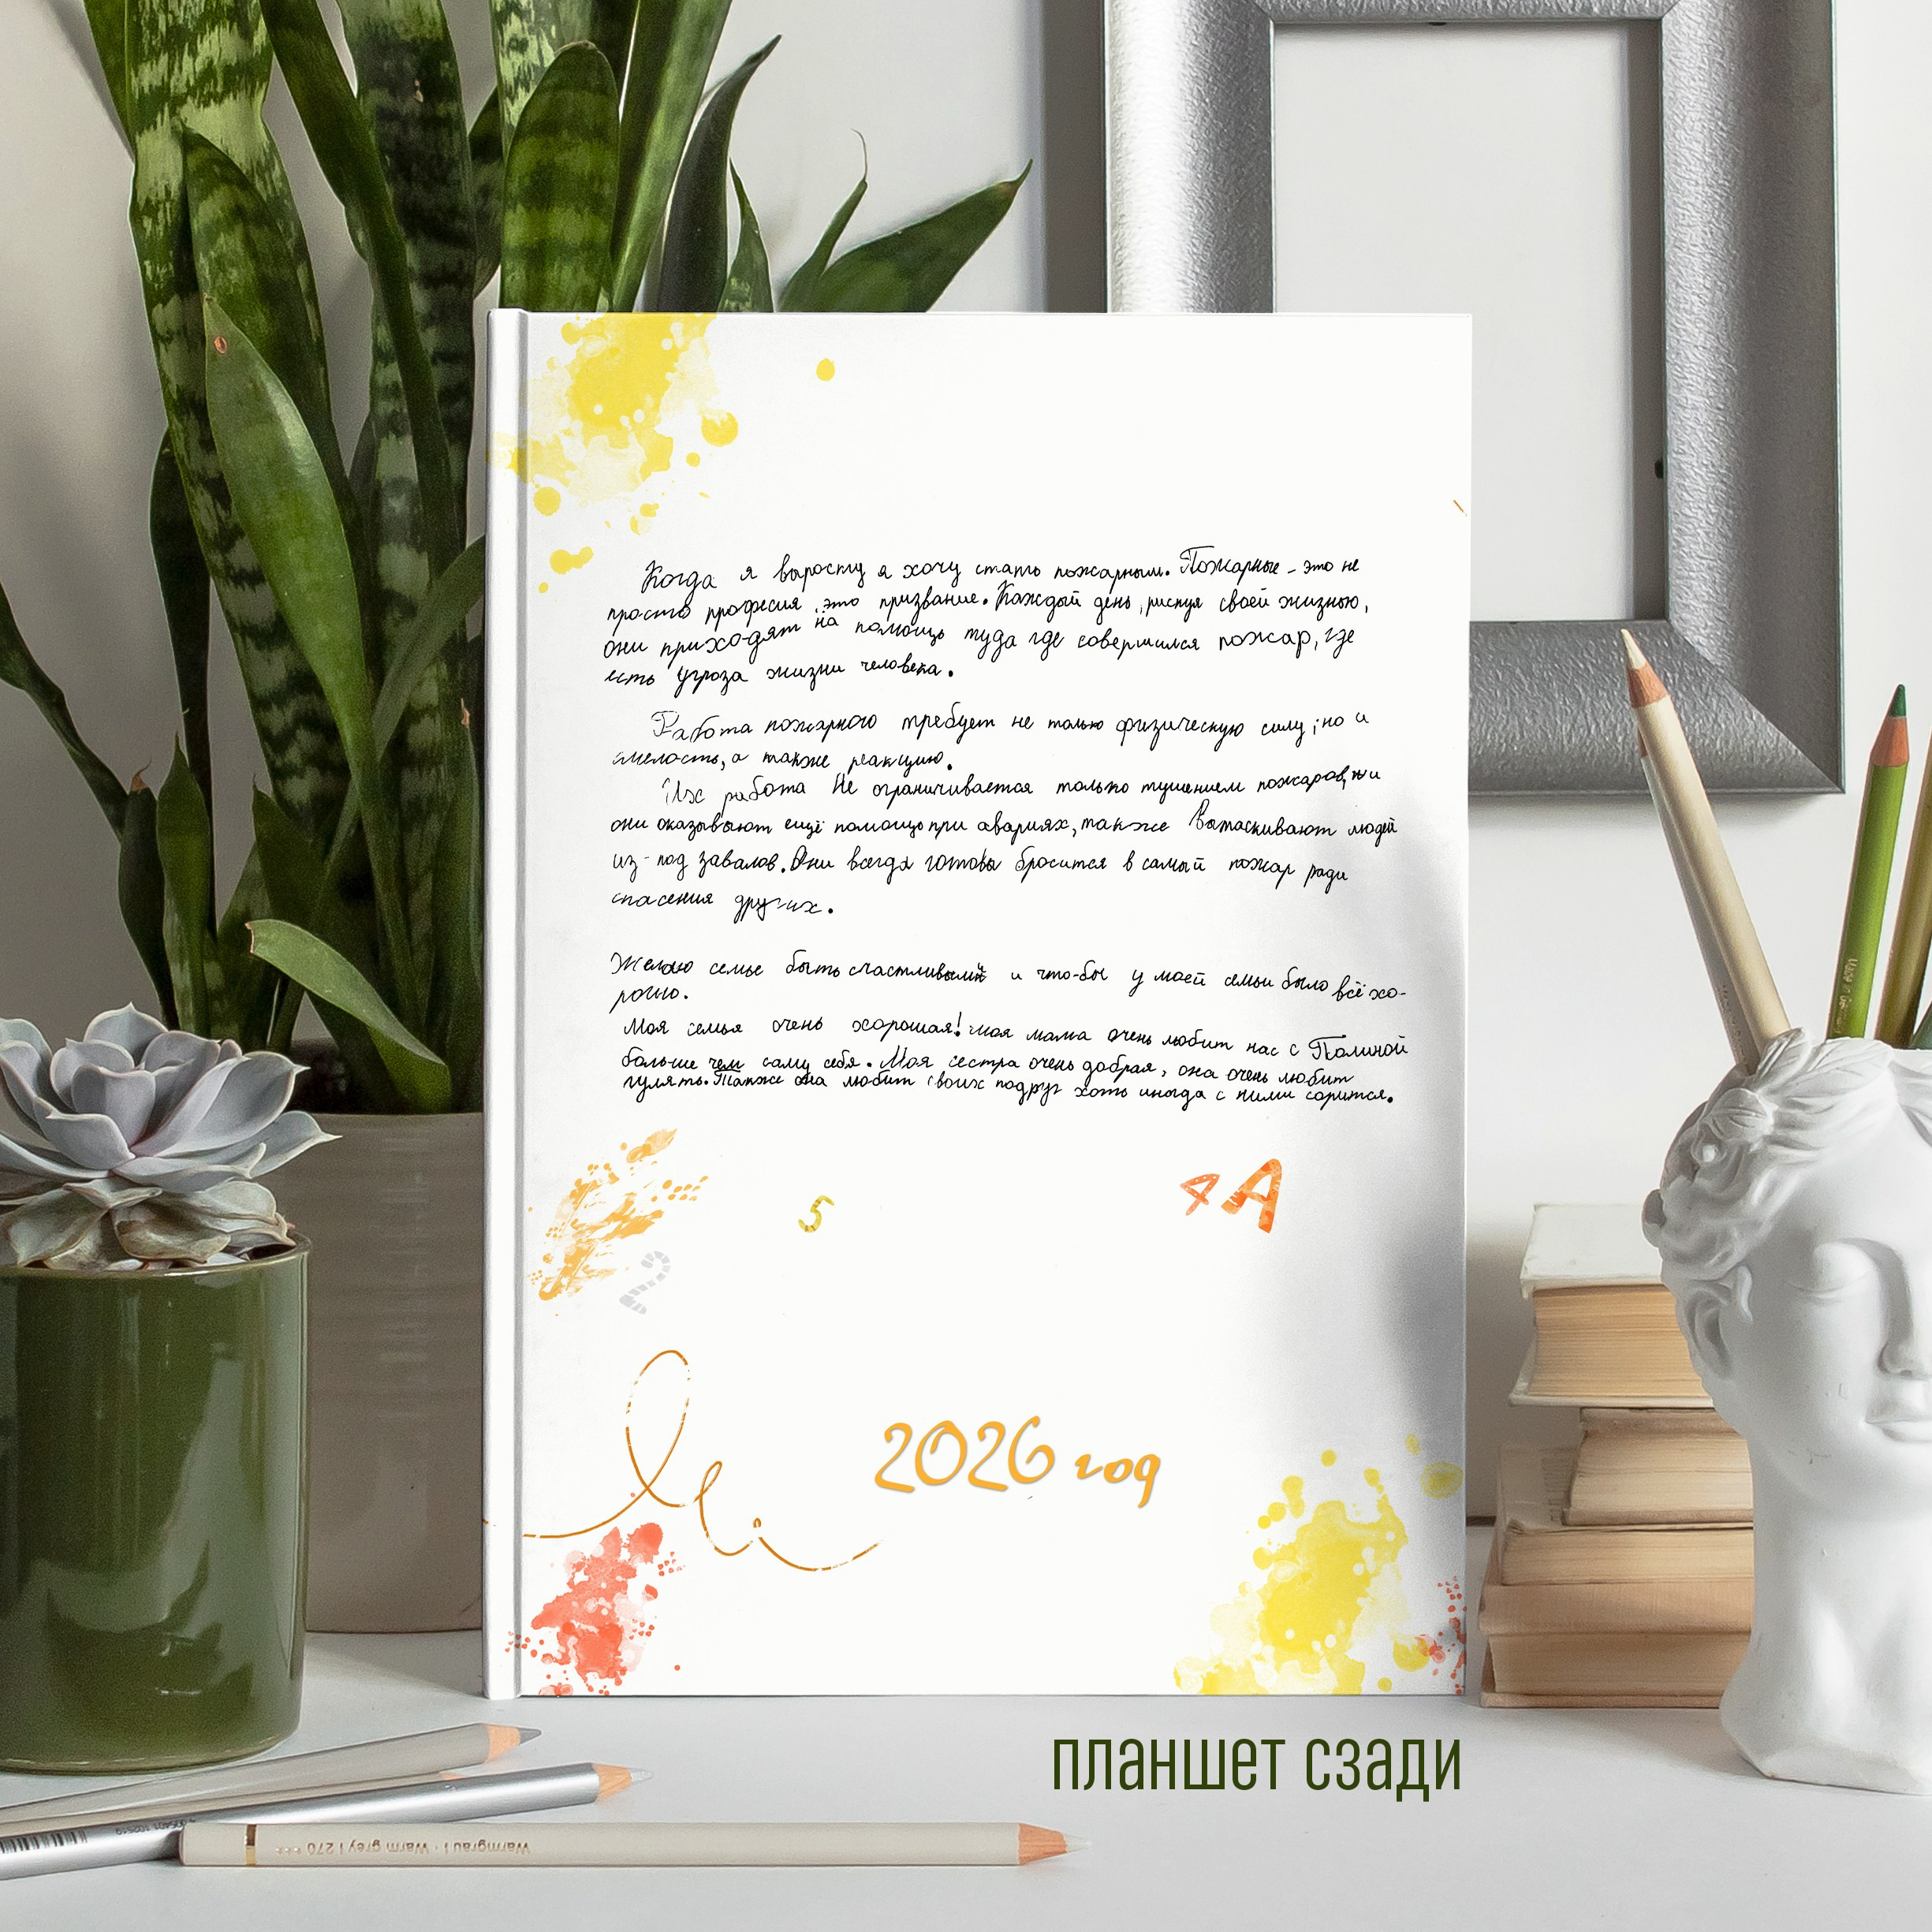 Когда я выросту я хочу стать пожарным. Пожарные - это не
просто професия, это призвание. Каждый день, рискуя своей жизнью,
они приходят на помощь туда где совершился пожар, где
есть угроза жизни человека.
Работа пожарного требует не только физическую силу, но и
смелость, а также реакцию.
Их работа не ограничивается только тушением пожаров,
они оказывают ещё помощь при авариях, также вытаскивают людей
из-под завалов. Они всегда готовы бросится в самый пожар ради
спасения других.
Желаю семье быть счастливыми и что-бы у моей семьи было всё хо-
рошо.
Моя семья очень хорошая! моя мама очень любит нас с Полиной
больше чем саму себя. Моя сестра очень добрая, она очень любит
гулять. Также она любит своих подруг хоть иногда с ними сорится.
5
4А
2
2026 год
планшет сзади
Warmgrau I · Warm grey I 270 ***